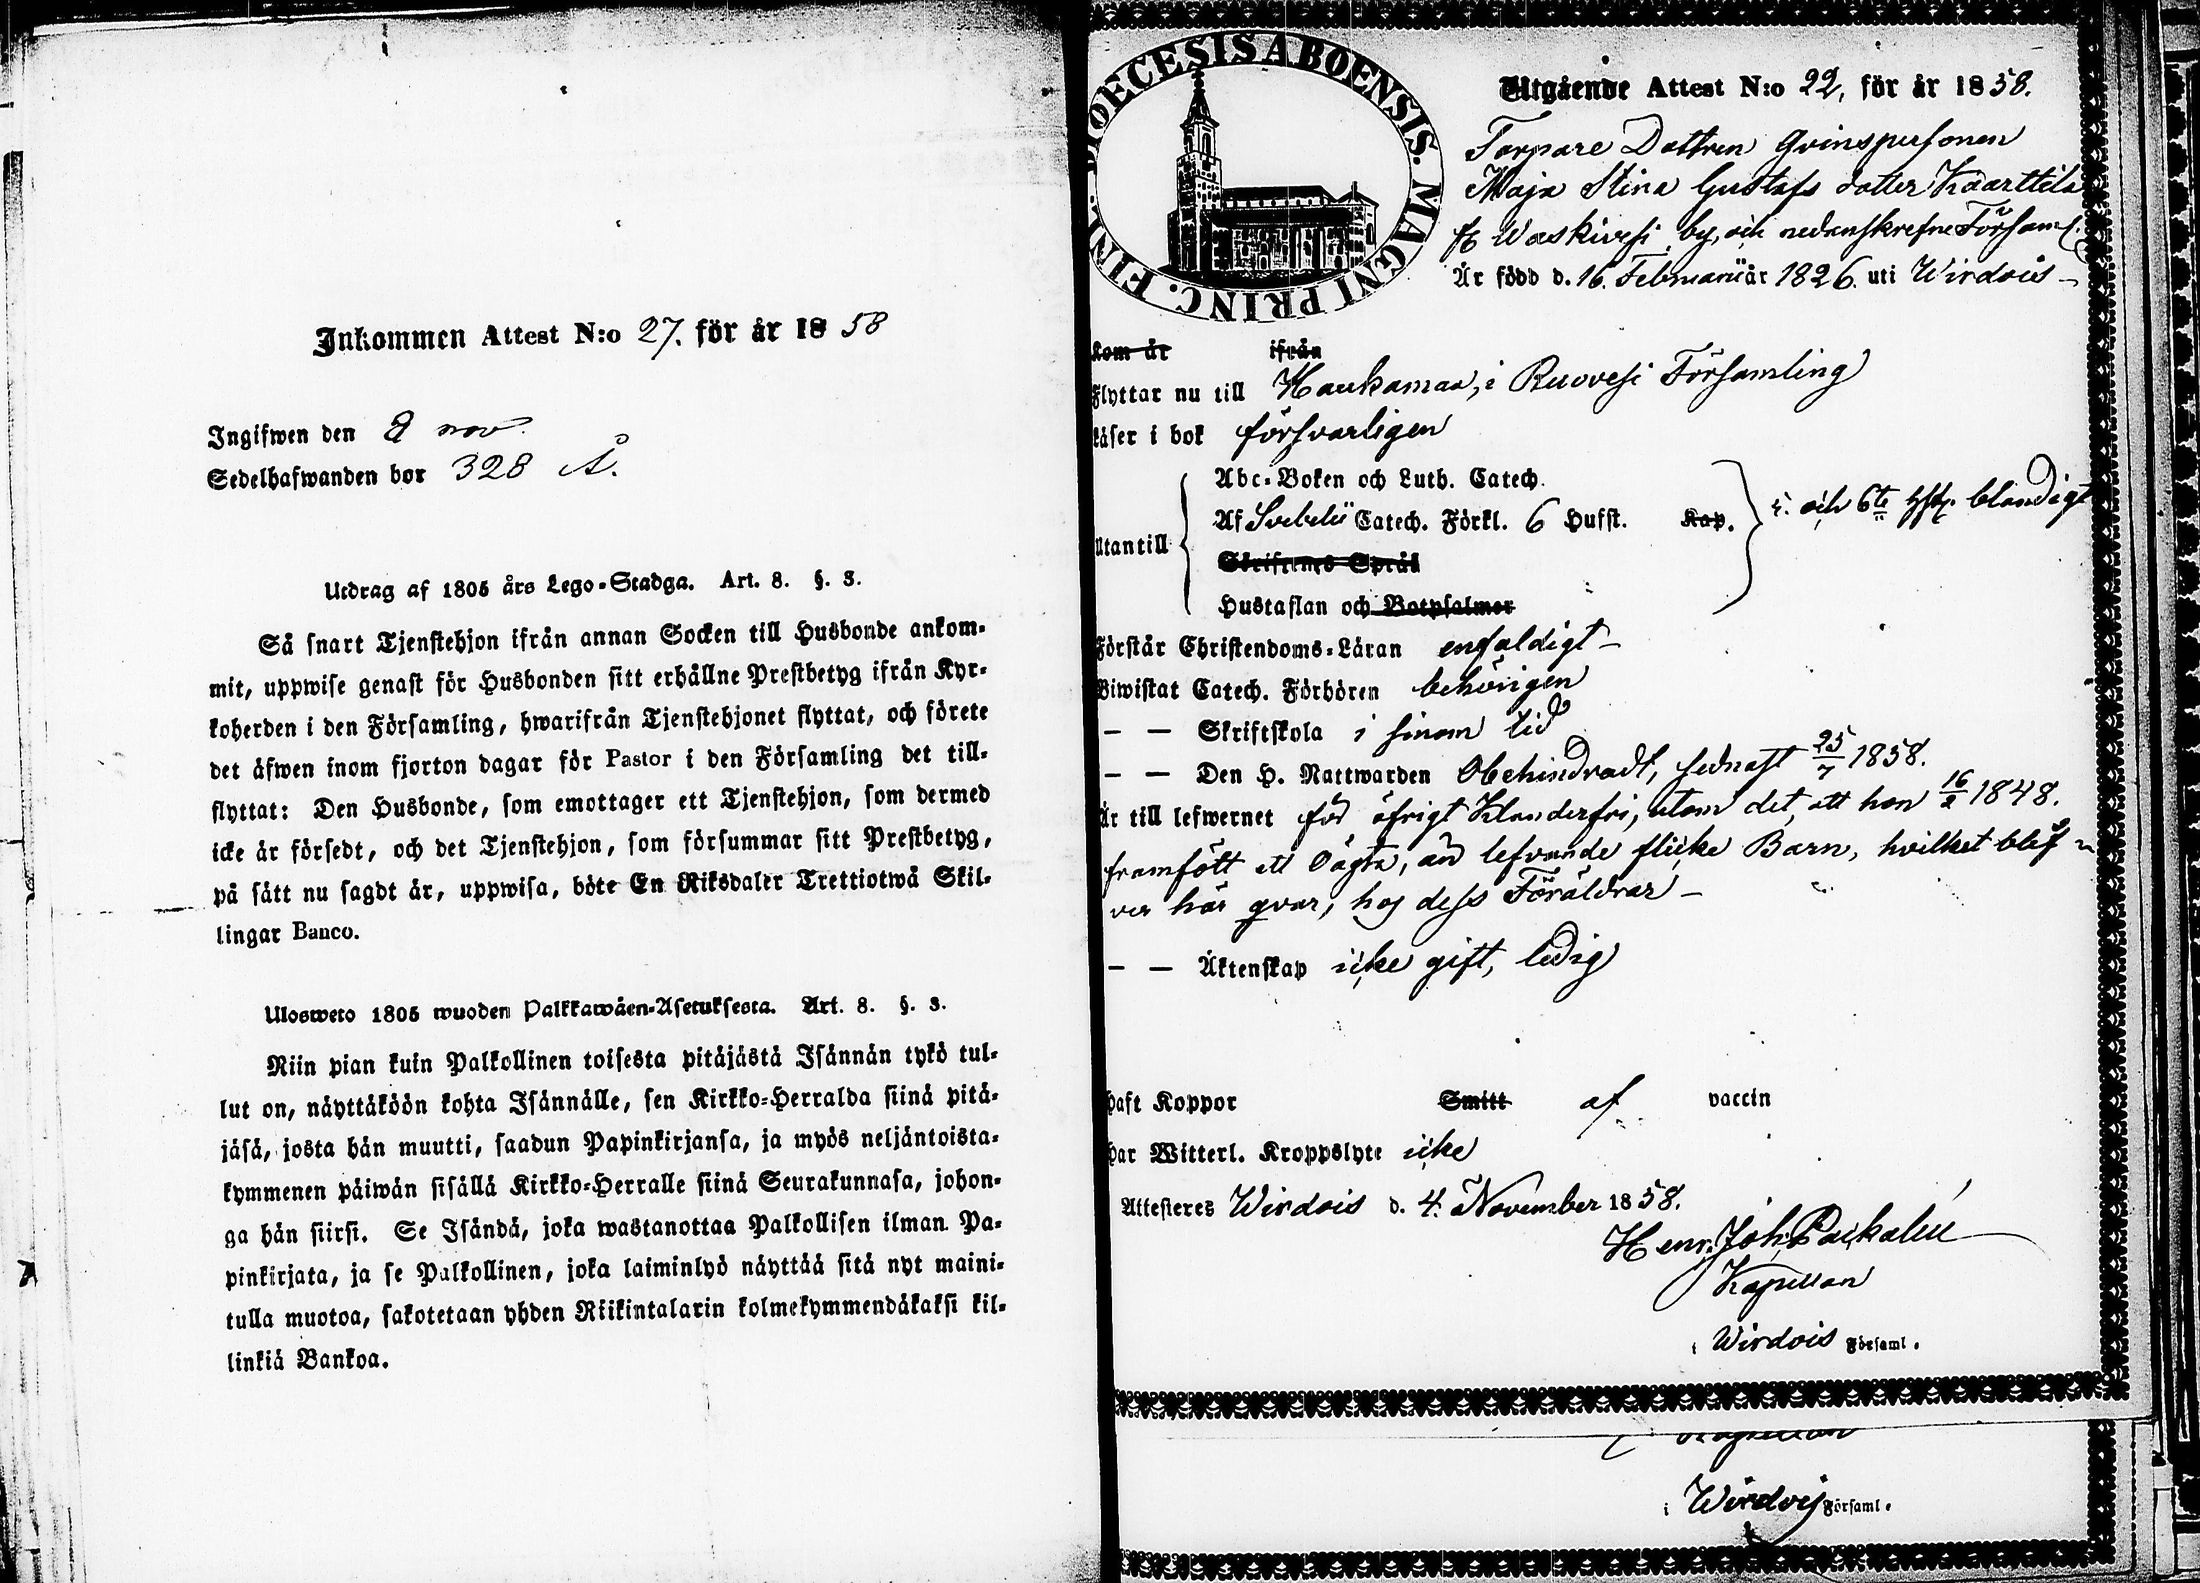 Inkommen Attest N:o 27. för år 1858
Ingifwen den 8 nov.
Sedelhafwanden bor 328 Å.
Utdrag af 1805 års Lego-Stadga. Art. 8. §. 3.
Så snart Tjenstehjon ifrån annan Socken till Husbonde ankom-
mit, uppwise genast för Husbonden sitt erhållne Prestbetyg ifrån Kyr-
koherden i den Församling, hwarifrån Tjenstehjonet flyttat, och förete
det äfwen inom fjorton dagar för Pastor i den Församling det till-
flyttat: Den Husbonde, som emottager ett Tjenstehjon, som dermed
icke är försedt, och det Tjenstehjon, som försummar sitt Prestbetyg,
på sätt nu sagdt är, uppwisa, böte En Riksdaler Trettiotwå Skil-
lingar Banco.
Ulosweto 1805 wuoden Palkkawäen-Asetuksesta. Art. 8. §. 3.
Niin pian kuin Palkollinen toisesta pitäjästä Isännän tykö tul-
lut on, näyttäköön kohta Isännälle, sen Kirkko-Herralda siinä pitä-
jäsä, josta hän muutti, saadun Papinkirjansa, ja myös neljäntoista-
kymmenen päiwän sisällä Kirkko-Herralle siinä Seurakunnasa, johon-
ga hän siirsi. Se Isändä, joka wastanottaa Palkollisen ilman Pa-
pinkirjata, ja se Palkollinen, joka laiminlyö näyttää sitä nyt maini-
tulla muotoa, sakotetaan yhden Riikintalarin kolmekymmendäkaksi kil-
linkiä Bankoa.
DIOECESIS ABOENSIS. MAGNI PRINC. FINL.
Utgående Attest N:o 22, för år 1858.
Torpare Dottren Qvinspersonen
Maja Stina Gustafs dotter Kaarttila
fr Waskivesi by, och nedanskrefne Församl.
Är född d. 16. Februarii år 1826. uti Wirdois
Kom år ifrån
Flyttar nu till Haukamaa, i Ruovesi Församling
Läser i bok försvarligen
Utantill
Abc-Boken och Luth. Catech.
Af Svebelii Catech. Förkl. 6 Hufst. Kap.
5. och 6te Hst. blandigt
Skriftenes Språk
Hustaflan och Botpsalmer
Förstår Christendoms-Läran enfaldigt
Biwistat Catech. Förhören behörigen
— — Skriftskola i sinom tid
— — Den H. Nattwarden Obehindradt, sednast 25/7 1858.
Är till lefwernet för öfrigt Klanderfri, utom det, att hon 16/2 1848.
framfött ett Oägta, än lefvande flicke Barn, hvilket blef
här qvar, hos dess Föräldrar
— — Äktenskap icke gift, ledig
Haft Koppor Smitt af vaccin
Har Witterl. Kroppslyte icke
Attesteres Wirdois d. 4. November 1858.
Henr. Joh. Packalén
Kapellan
i Wirdois Församl.
Kapellan
i Wirdois Församl.